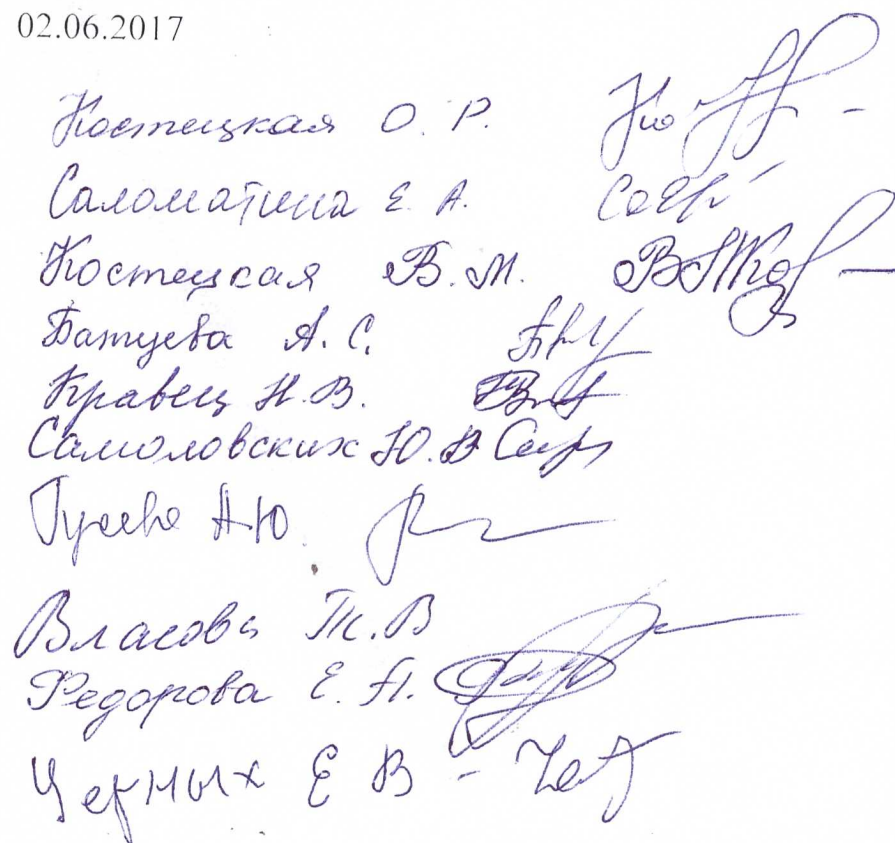 02.06.2017
Костецкая О. Р.
Саломатина Е. А.
Костецкая В. М.
Батуева А. С.
Кравец Н. В.
Самоловских Ю. В
Гусева А Ю
Власова Т. В
Федорова Е. А.
Черных Е В -